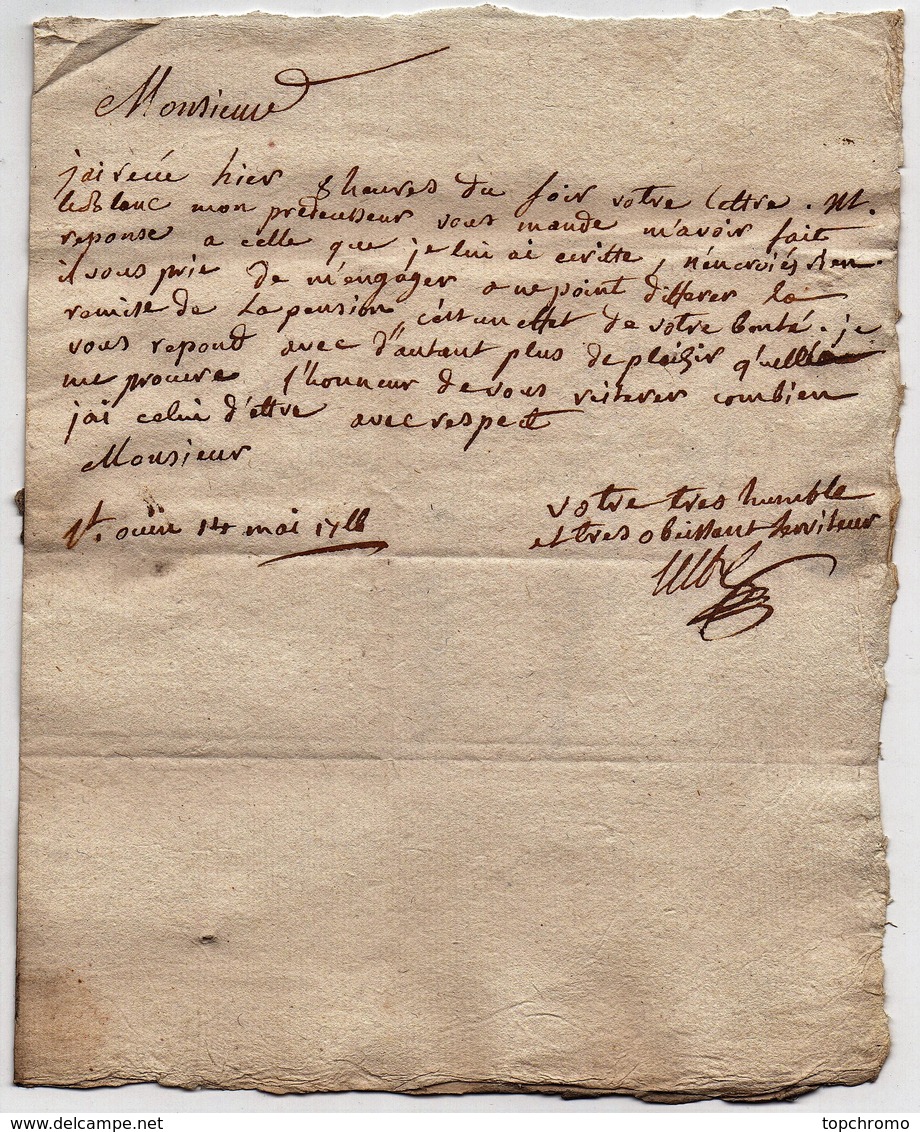 Monsieur
j'ai recüe hier 8 heures du soir votre lettre. M.
leblanc mon predecesseur vous mande m'avoir fait
reponse a celle que je lui ai ecritte, n'en croiés rien.
il vous prie de m'engager a ne point differer la
remise de La pension c'est un effet de votre bonté. je
vous repond avec d'autant plus de plaizir qu'elle
me procure l'honneur de vous reiterer combien
j'ai celui d'etre avec respect
Monsieur
votre tres humble
St. oüin 14 mai 17
et tres obeissant serviteur
topchromo